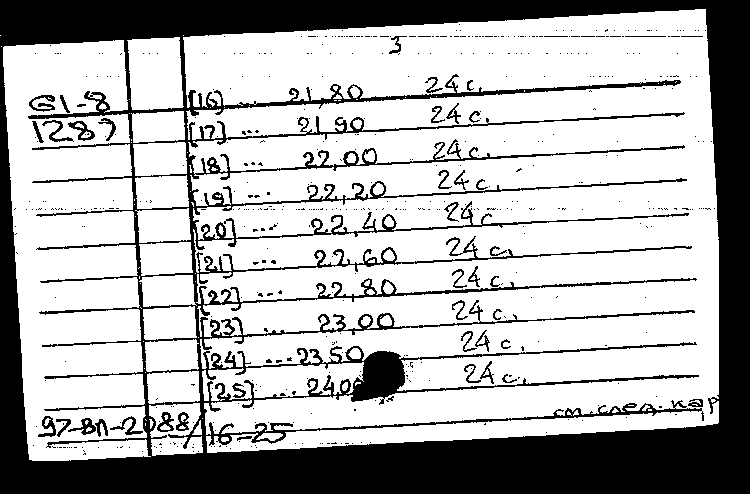 3
G1-8 [16] ... 21,80 24 с.
1287 [17] ... 21,90 24 с.
[18] ... 22,00 24 с.
[19] ... 22,20 24 с.
[20] ... 22,40 24 с
[21] ... 22,60 24 с.
[22] ... 22,80 24 с.
[23] ... 23,00 24 с.
[24] ... 23,50 24 с.
[25] ... 24,0 24 с.
см. след. кар
97-ВЛ-2088/16-25